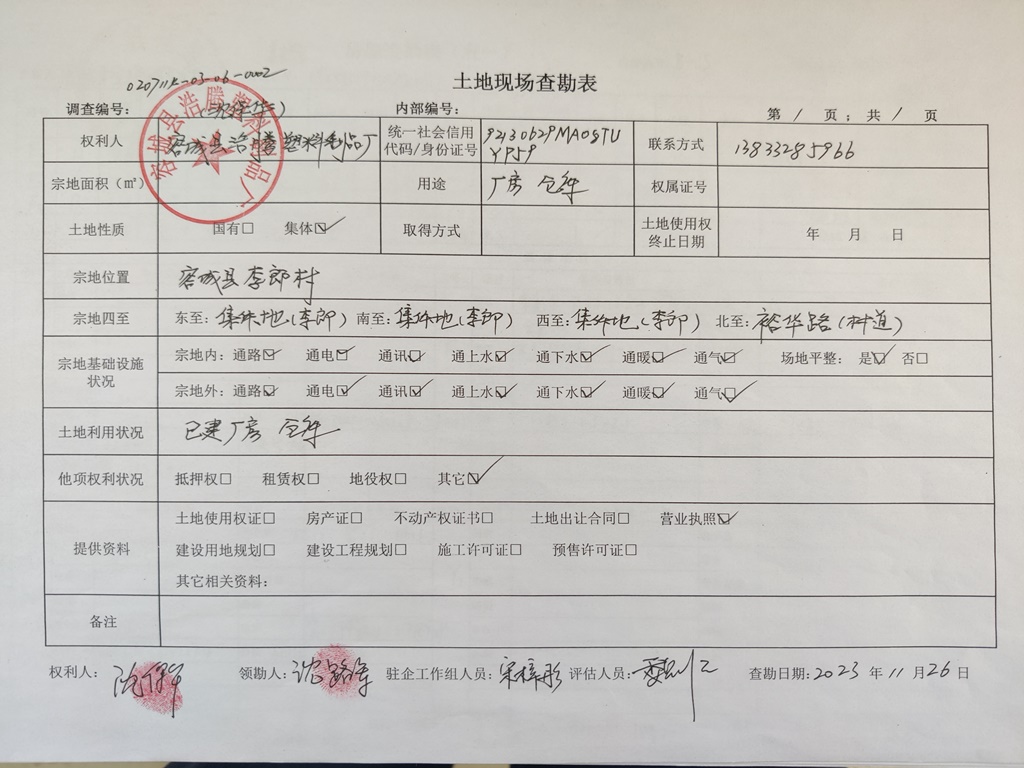 020711K-03-06-0002
土地现场查勘表
调查编号:
内部编号:
第 / 页；共 / 页
权利人 容城县浩腾塑料制品厂 统一社会信用代码/身份证号 92130629MA08TUYP59 联系方式 13833285966
宗地面积（㎡） 用途 厂房 仓库 权属证号
土地性质 国有□ 集体☑ 取得方式 土地使用权终止日期 年 月 日
宗地位置 容城县李郎村
宗地四至 东至:集体地(李郎) 南至:集体地(李郎) 西至:集体地(李郎) 北至:裕华路(村道)
宗地基础设施状况 宗地内: 通路☑ 通电☑ 通讯☑ 通上水☑ 通下水☑ 通暖☑ 通气☑ 场地平整: 是☑ 否□
宗地外: 通路☑ 通电☑ 通讯☑ 通上水☑ 通下水☑ 通暖☑ 通气☑
土地利用状况 已建厂房 仓库
他项权利状况 抵押权□ 租赁权□ 地役权□ 其它☑
提供资料 土地使用权证□ 房产证□ 不动产权证书□ 土地出让合同□ 营业执照☑
建设用地规划□ 建设工程规划□ 施工许可证□ 预售许可证□
其它相关资料:
备注
权利人: 领勘人: 驻企工作组人员:宋梓彤 评估人员: 查勘日期:2023 年 11 月 26 日
容城县浩腾塑料制品厂